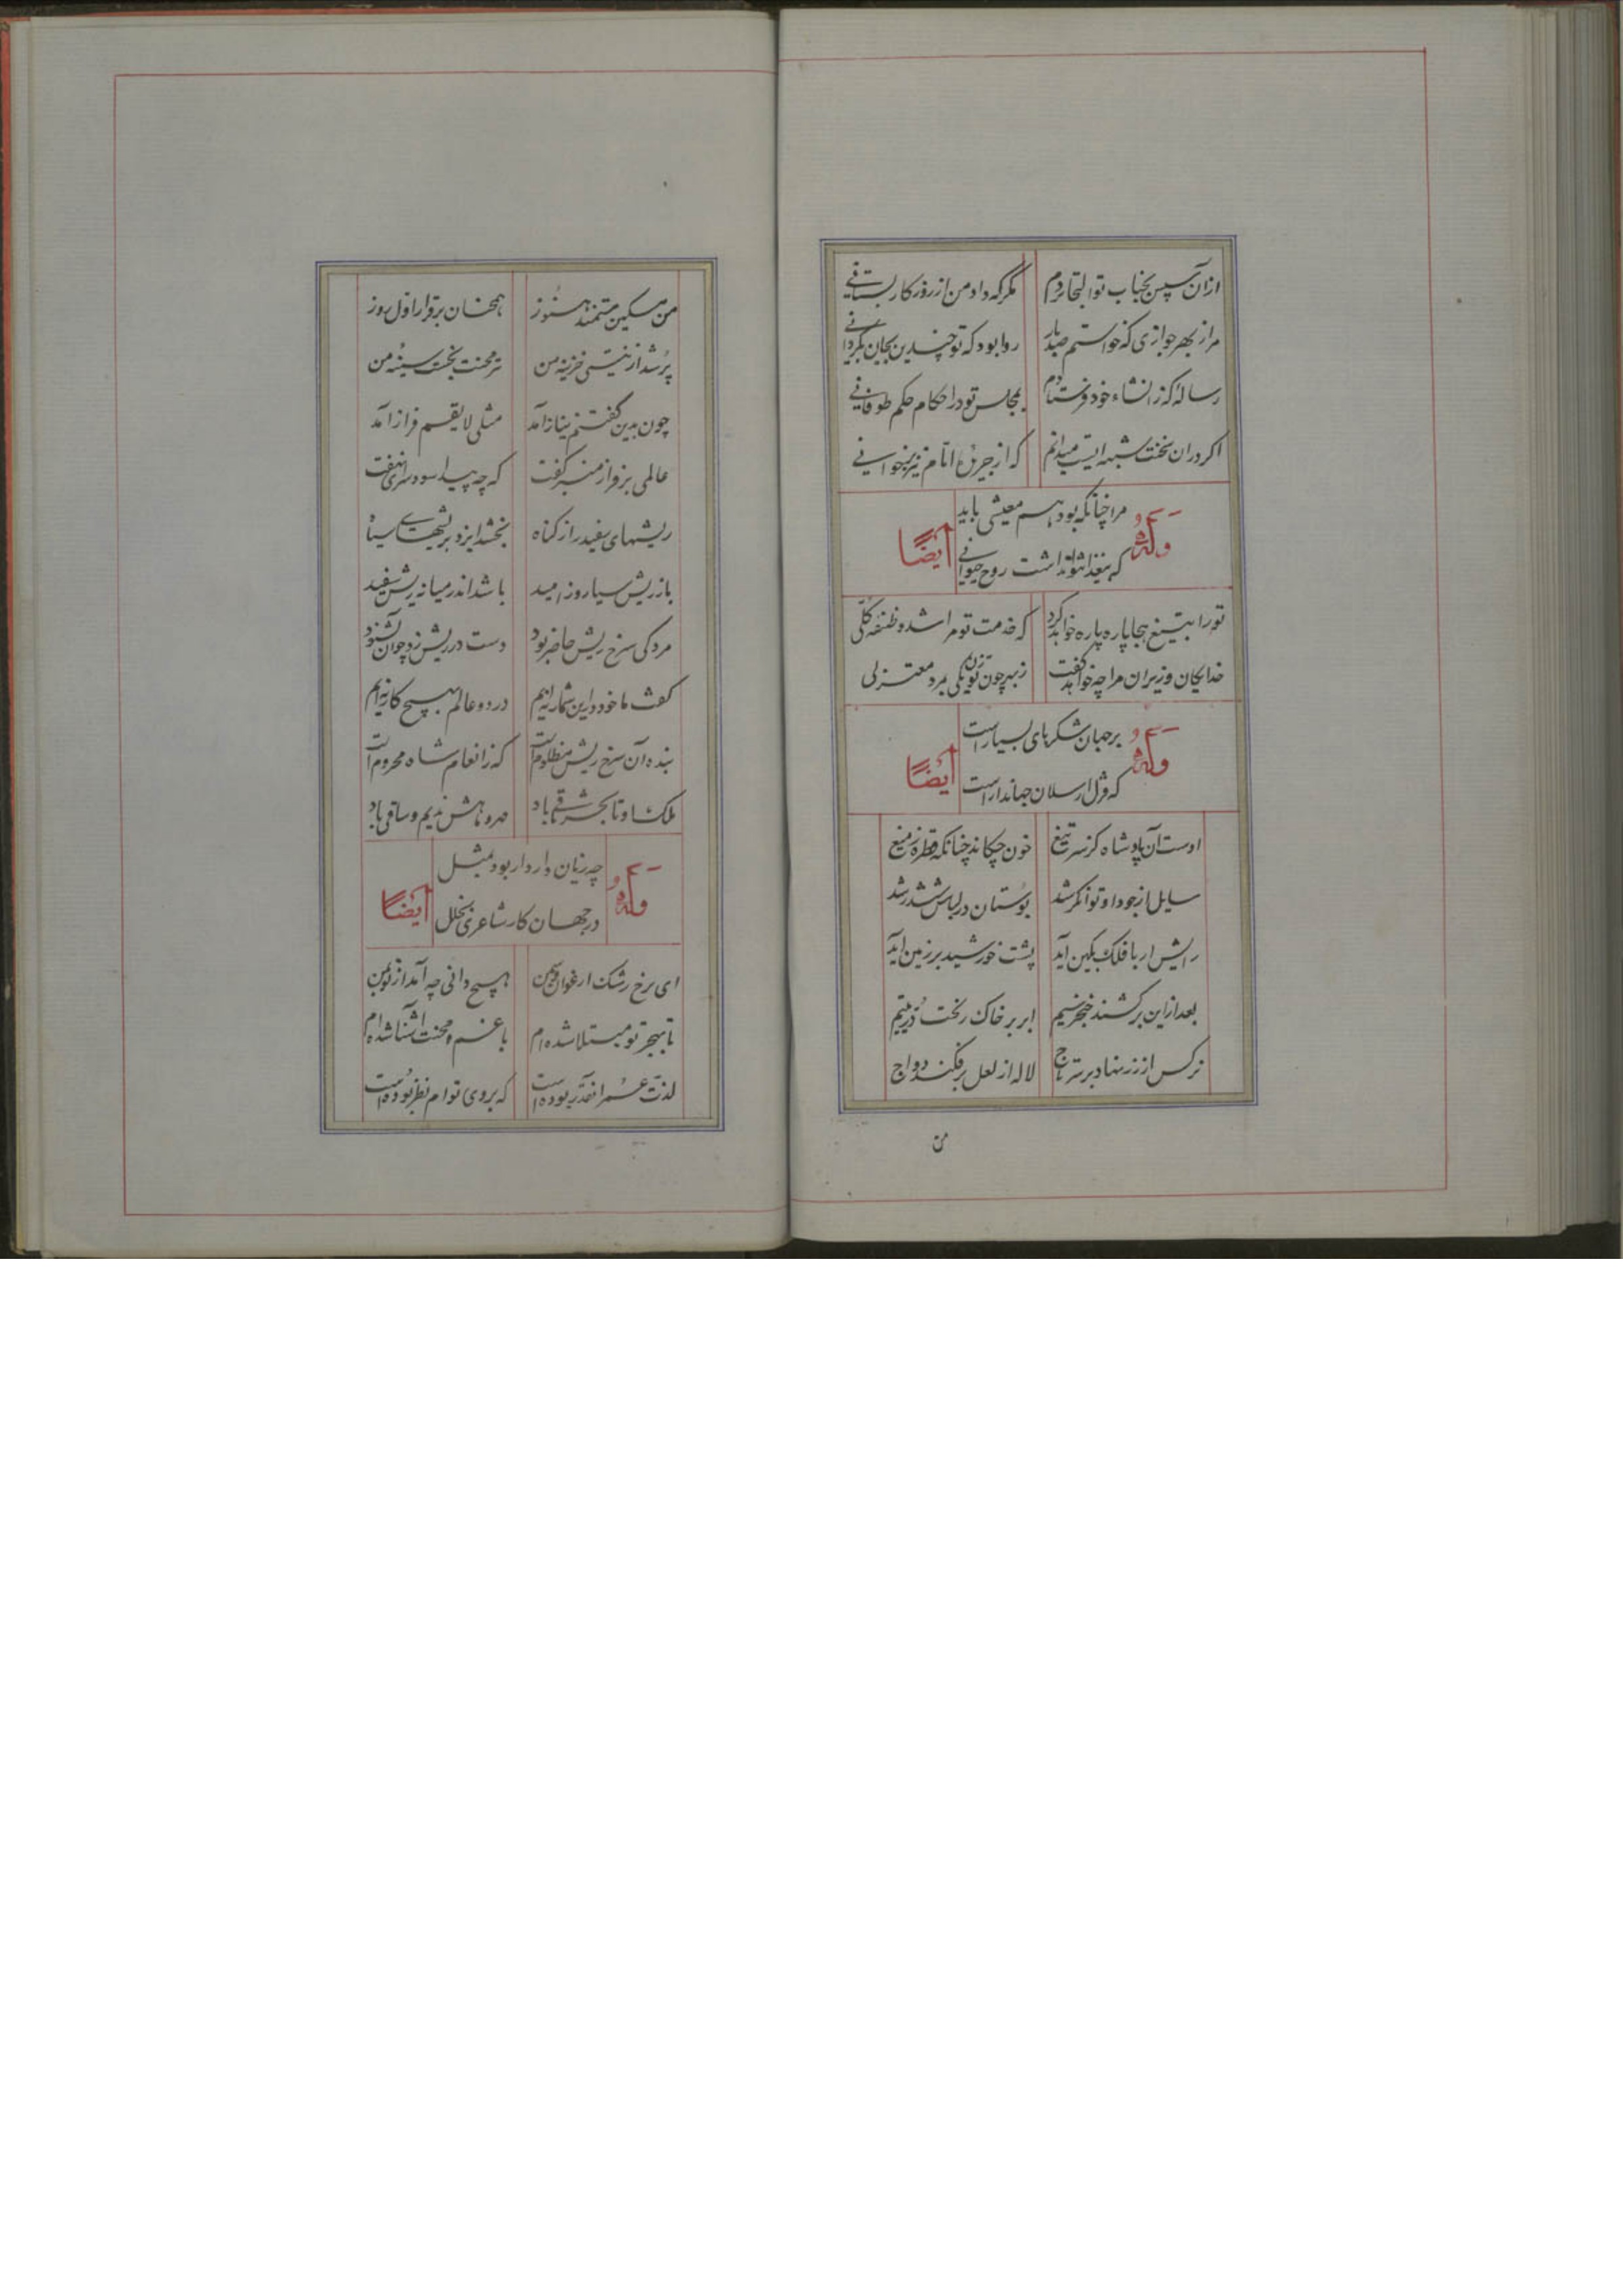 ازان سپس بجناب تو التجا بردم مگر که داد من از روزکار بستانی
مرا ز بهر جوازی که خواستم صد بار روا بود که تو چندین بجان بگردانی
رساله که ز انشاء خود فرستادم بمجلس تو در احکام حکم طوفانی
اکر دران سخنت شبهه ایست میدانم که از جریدهٔ ایام نیز برخوانی
وله ایضاً
مرا چنانکه بود هم معیشتی باید
که بیغذا نتوانداشت روح حیوانی
تو را بتیغ هجا پاره پاره خواهد کرد که خدمت تو مرا شد وظیفه کلی
خدایکان وزیران مرا چه خواهد کفت ز بهر چون تو یکی مرد معتزلی
وله ایضاً
بر جهان شکرهای بسیار است
که قزل ارسلان جهاندار است
اوست آن پادشاه کز سر تیغ خون چکاند چنانکه قطره ز میغ
سایل از جود او توانکر شد بوستان در لباس ششدر شد
رایش ار با فلک بکین آید پشت خورشید بر زمین آید
بعد ازاین برکشند خنجر سیم ابر بر خاک ریخت در یتیم
نرکس از زر نهاد بر سر تاج لاله از لعل برفکند دواج
من
من مسکین مستمند هنوز همچنان برقرار اول روز
پر شد از نیستی خزینه من تر محنت بخت سینهٔ من
چون بدین کفتنم نیاز آمد مثلی لایقم فراز آمد
عالمی بر فراز منبر کفت که چو پیدا سود سرای نهفت
ریشهای سفید را ز کناه بخشد ایزد بریشهای سیاه
باز ریش سیاه روز امید باشد اندر میانه ریش سفید
مردکی سرخ ریش حاضر بود دست در ریش زد چو آن بشنود
کفت ما خود دراین شمار نه‌ایم در دو عالم بهیچ کار نه‌ایم
بنده آن سرخ ریش مظلوم است که ز انعام شاه محروم است
ملک او تا بحشر باقی باد مهر و ماهش ندیم و ساقی باد
وله ایضاً
چه زیان دارد ار بود بمثل
در جهان کار شاعری بخلل
ای برخ رشک ارغوان و سمن هیچ دانی چه آمد از تو بمن
تا بهجر تو مبتلا شده‌ام با غم و محنت آشنا شده‌ام
لذت عمرم انقدر بوده است که بروی تو ام نظر بوده است